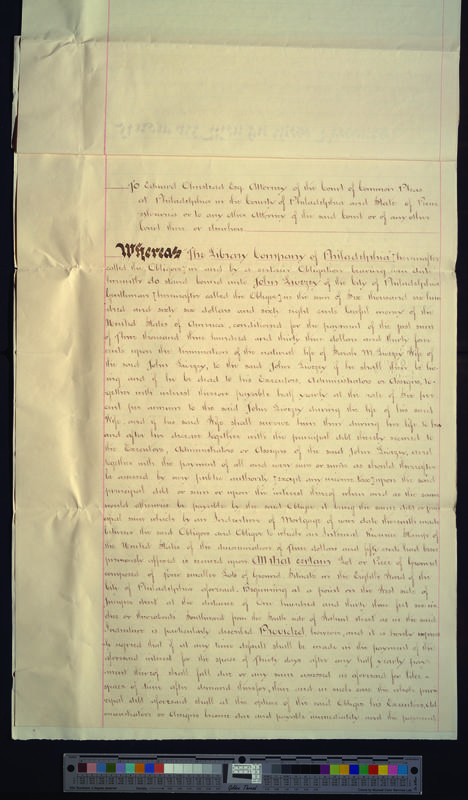 To Edward Olmstead Esq. Attorney of the Court of Common Pleas
at Philadelphia in the County of Philadelphia and State of Penn
sylvania or to any other Attorney of the said Court or of any other
Court there or elsewhere
Whereas "The Library Company of Philadelphia" (hereinafter
called the Obligors) in and by a certain Obligation bearing even date
herewith do stand bound unto John Livezey of the City of Philadelphia
Gentleman (hereinafter called the Obligee) in the sum of Six thousand six hun
dred and sixty six dollars and sixty eight cents lawful money of the
United States of America, conditioned for the payment of the just sum
of Three thousand three hundred and thirty three dollars and thirty four
cents upon the termination of the natural life of Sarah M. Livezey Wife of
the said John Livezey, to the said John Livezey if he shall then be liv
ing and if he be dead to his Executors, Administrators or Assigns, to-
gether with interest thereon payable half yearly at the rate of Six per
cent per annum to the said John Livezey during the life of his said
Wife, and if his said Wife shall survive him then during her life to her
and after her decease together with the principal debt thereby secured to
the Executors, Administrators or Assigns of the said John Livezey, and
together with the payment of all and every sum or sums as should thereafter
be assessed by any public authority (except any income tax) upon the said
principal debt or sum or upon the interest thereof when and as the same
would otherwise be payable by the said Obligee it being the same debt or prin
cipal sum which by an Indenture of Mortgage of even date therewith made
between the said Obligors and Obligee to which an Internal Revenue Stamp of
the United States of the denomination of Three dollars and fifty cents had been
previously affixed is secured upon All that certain Lot or Piece of Ground
composed of four smaller Lots of Ground Situate in the Eighth Ward of the
City of Philadelphia aforesaid. Beginning at a point on the West side of
Juniper street at the distance of One hundred and thirty three feet
Southward from the South side of Walnut street as in the said
Indenture is particularly described Provided however, and it is hereby expressly
agreed that if at any time default shall be made in the payment of the
aforesaid interest for the space of Thirty days after any half yearly pay-
ment thereof shall fall due or any sum assessed as aforesaid for like
space of time after demand therefor, then and in such case the whole prin
cipal debt aforesaid shall at the option of the said Obligee his Executors, Ad
ministrators or Assigns become due and payable immediately and the payment